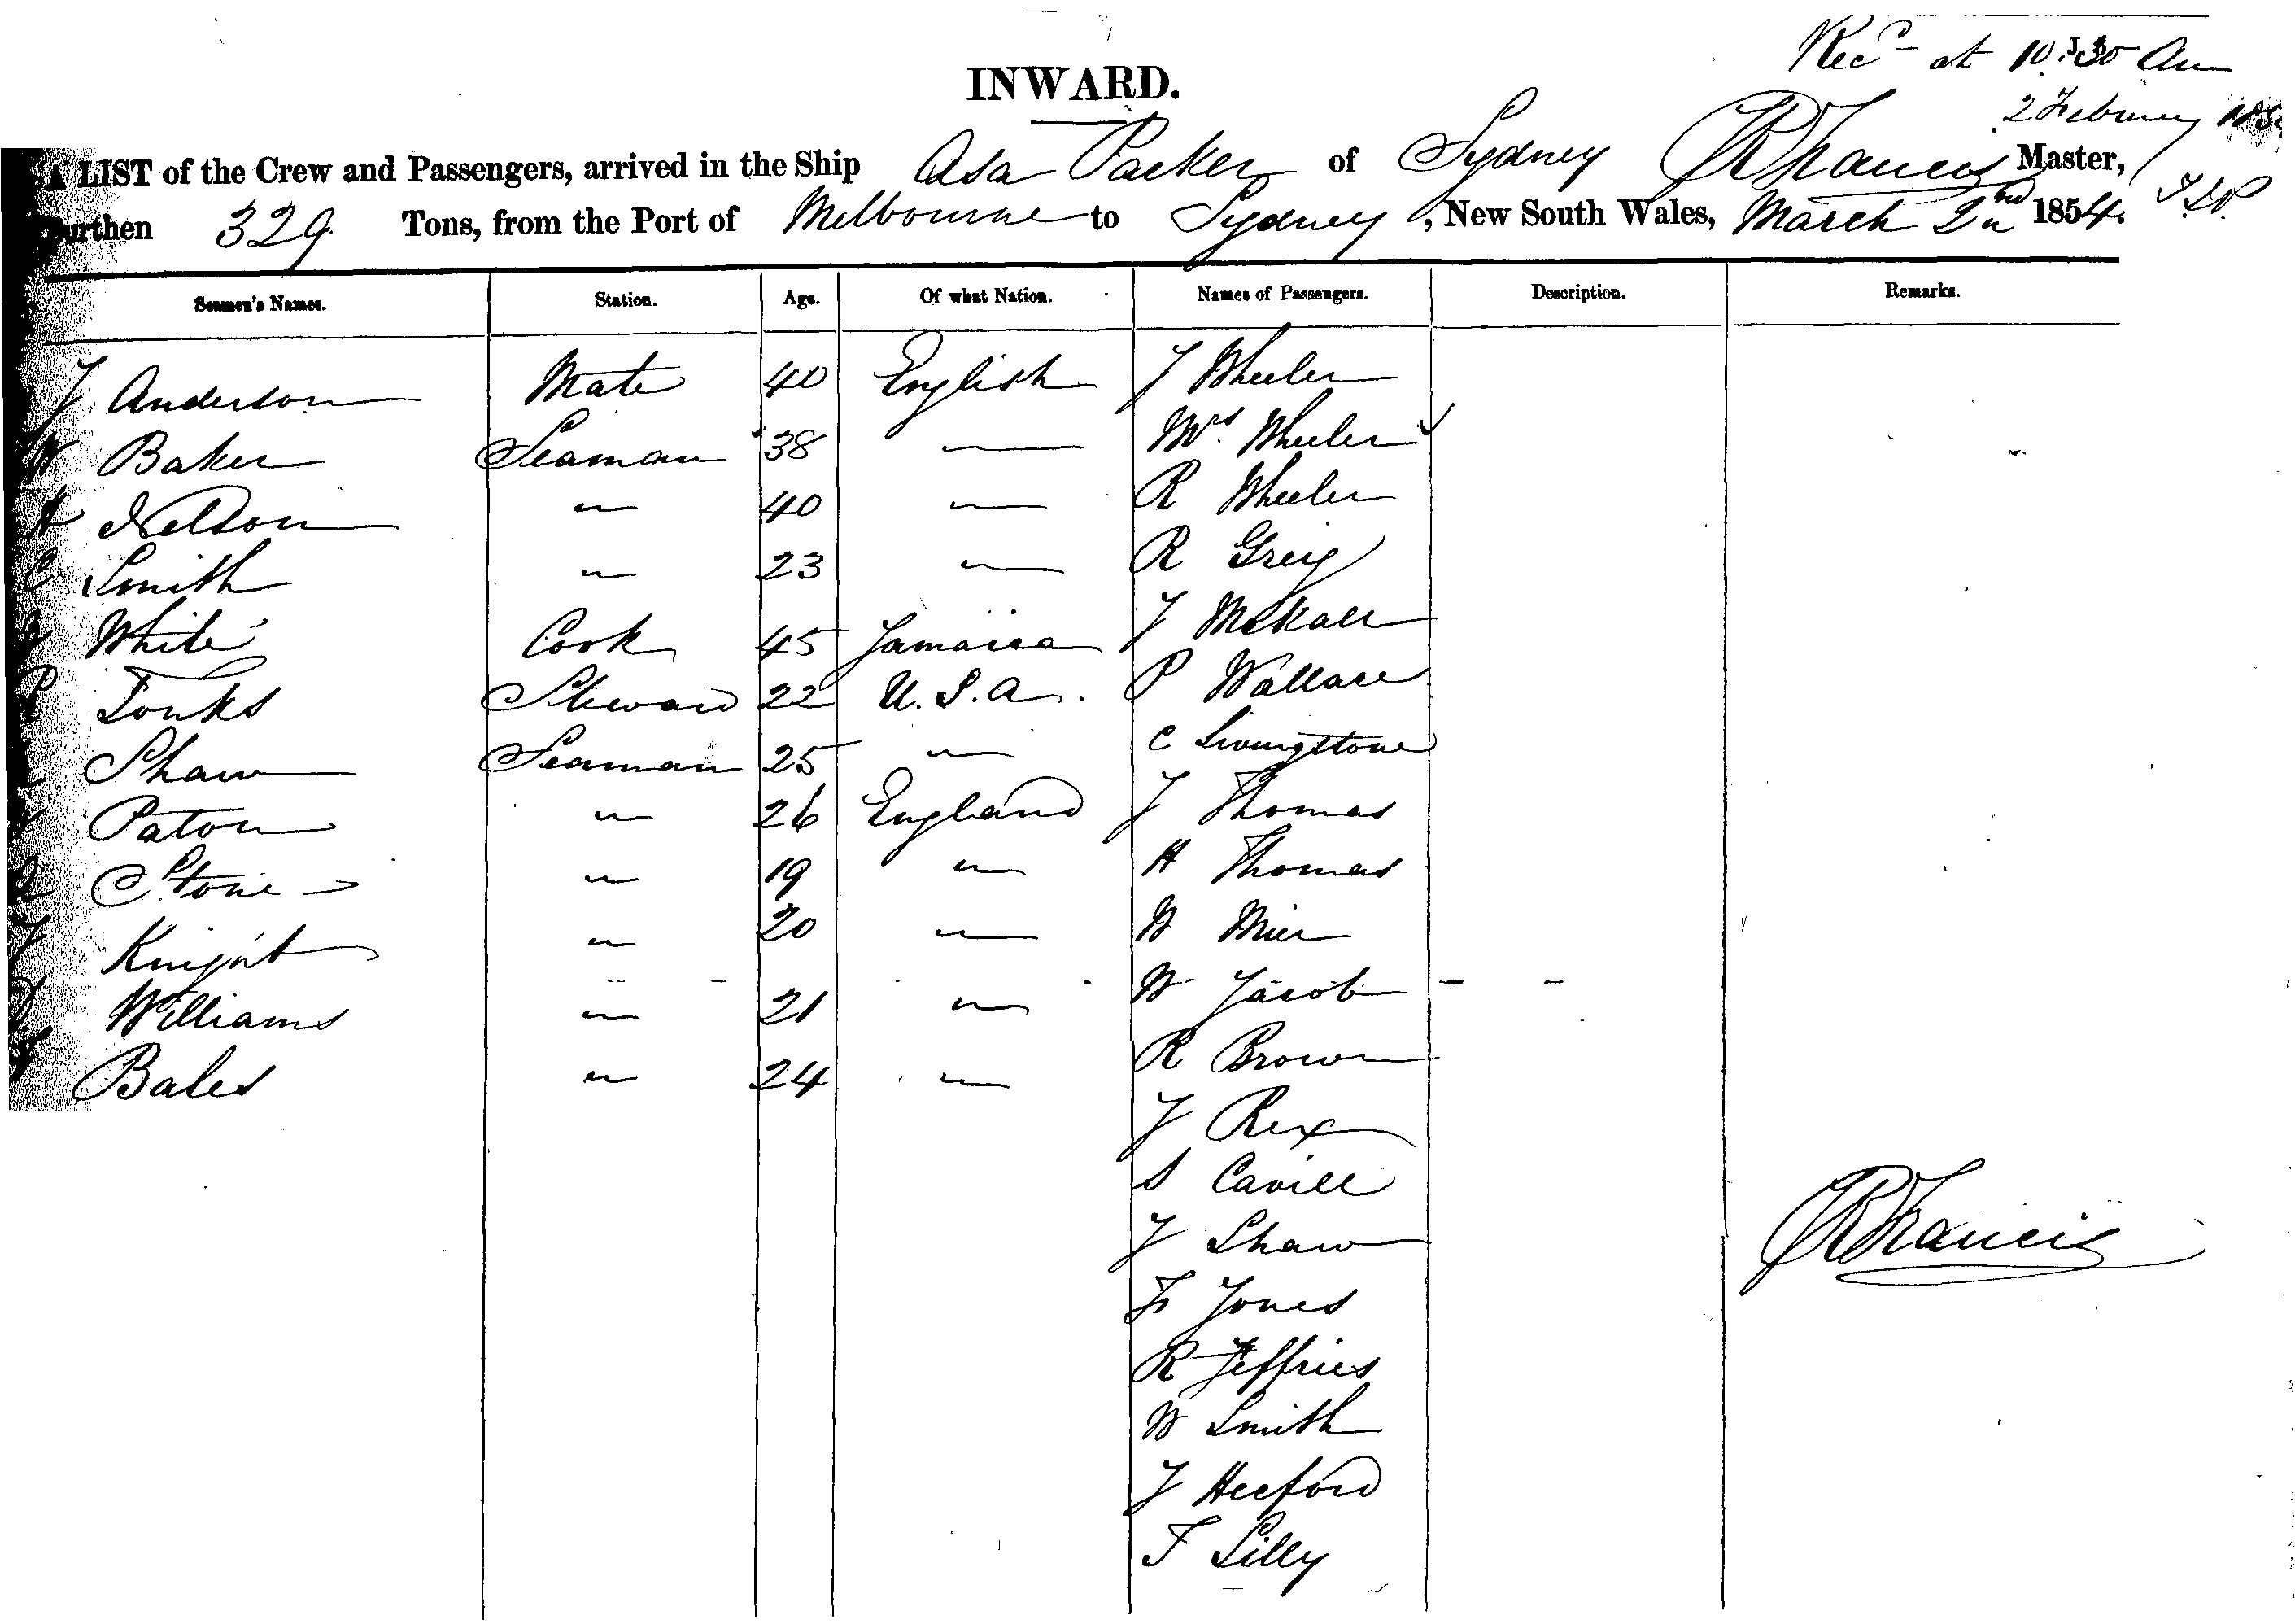 Recd at 10.30 Am
INWARD.
2 February
A LIST of the Crew and Passengers, arrived in the Ship Asa Packer of Sydney JR Francis Master,
Burthen 329 Tons, from the Port of Melbourne to Sydney, New South Wales, March 2nd 1854.
Seamen's Names. Station. Age. Of what Nation. Names of Passengers. Description. Remarks.
J Anderson Mate 40 English J Wheeler
W Baker Seaman 38 — Mrs Wheeler
H Nelson " 40 — R Wheeler
C Smith " 23 — R Greig
White Cook 45 Jamaica J
R Tonks Steward 22 U.S.A. P Wallace
Shaw Seaman 25 " C Livingstone
Paton " 26 England J Thomas
Stone " 19 " H Thomas
J Knight " 20 — W
Williams " 21 " W Jacob
Bales " 24 — R Brown
J Rex
S Cavill
J Shaw
F Jones
R Jeffries
W Smith
J
F Lilly
JR Francis